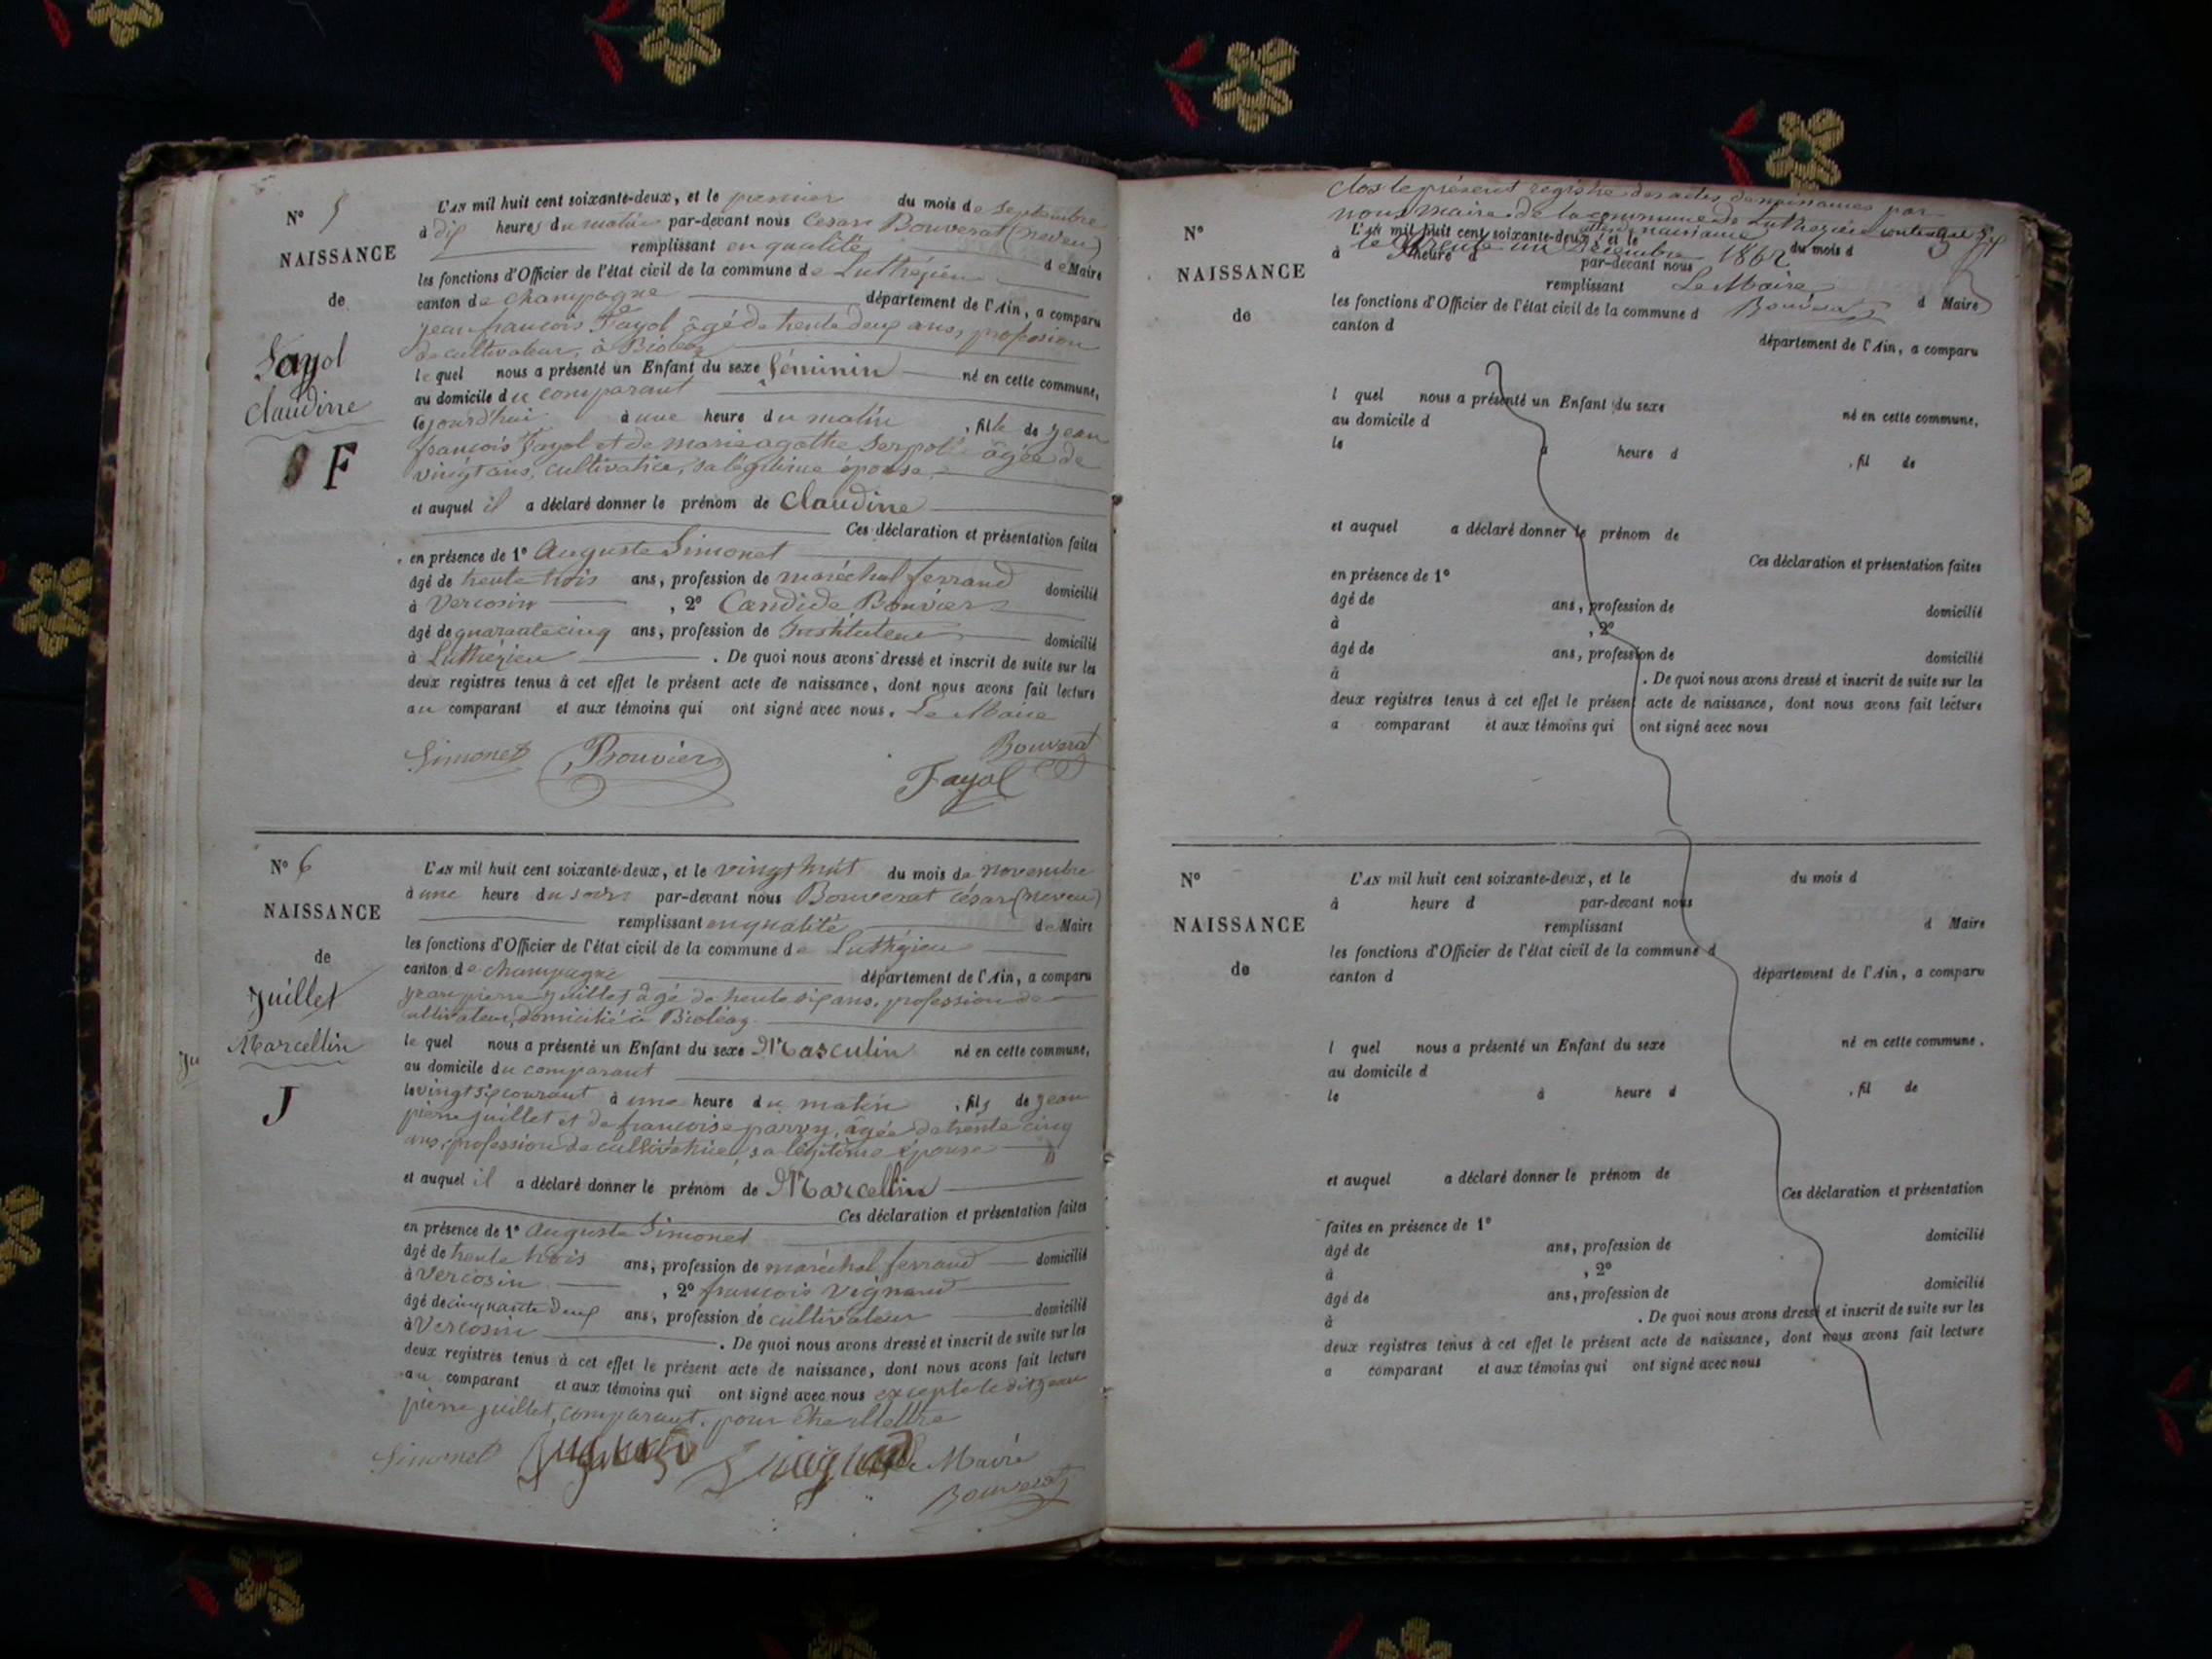 N° 5
NAISSANCE
de
Fayol
Claudine
F
L'AN mil huit cent soixante-deux, et le premier du mois de Septembre
à dix heures du matin par-devant nous Cesar Bouverat (neveu)
remplissant en qualité de Maire
les fonctions d'Officier de l'état civil de la commune de Luthézieu
canton de Champagne département de l'Ain, a comparu
jean françois Fayol âgé de trente deux ans, profession
de cultivateur, à Bioléaz
le quel nous a présenté un Enfant du sexe féminin né en cette commune,
au domicile du comparant
cejourd'hui à une heure du matin, fille de jean
françois Fayol et de marie agathe Serpol âgée de
vingt ans, cultivatrice, sa légitime épouse,
et auquel il a déclaré donner le prénom de Claudine
Ces déclaration et présentation faites
en présence de 1° Auguste Simonet
âgé de trente trois ans, profession de maréchal ferrand domicilié
à Vercosin, 2° Candide Bouvier
âgé de quarante cinq ans, profession de Instituteur domicilié
à Luthézieu. De quoi nous avons dressé et inscrit de suite sur les
deux registres tenus à cet effet le présent acte de naissance, dont nous avons fait lecture
au comparant et aux témoins qui ont signé avec nous. Le Maire
Simonet Bouvier Bouverat
Fayol
N° 6
NAISSANCE
de
Juillet
Marcellin
J
L'AN mil huit cent soixante-deux, et le vingt huit du mois de novembre
à une heure du soir par-devant nous Bouverat César (neveu)
remplissant en qualité de Maire
les fonctions d'Officier de l'état civil de la commune de Luthézieu
canton de Champagne département de l'Ain, a comparu
jean pierre juillet âgé de trente six ans, profession de
cultivateur, domicilié à Bioléaz.
le quel nous a présenté un Enfant du sexe Masculin né en cette commune,
au domicile du comparant
le vingt six courant à une heure du matin, fils de jean
pierre juillet et de françoise parvy, âgée de trente cinq
ans, profession de cultivatrice, sa légitime épouse
et auquel il a déclaré donner le prénom de Marcellin
Ces déclaration et présentation faites
en présence de 1° Auguste Simonet
âgé de trente trois ans, profession de maréchal ferrand domicilié
à Vercosin, 2° françois Vignand
âgé de cinquante deux ans, profession de cultivateur domicilié
à Vercosin. De quoi nous avons dressé et inscrit de suite sur les
deux registres tenus à cet effet le présent acte de naissance, dont nous avons fait lecture
au comparant et aux témoins qui ont signé avec nous excepté le dit jean
pierre juillet, comparant, pour être illettré
Simonet Le Maire
Bouverat
Clos le présent registre des actes de naissances par
nous maire de la commune de Luthézieu
le trente un Décembre 1862
Le Maire
Bouverat
N°
NAISSANCE
de
L'AN mil huit cent soixante-deux, et le du mois d
à heure d par-devant nous
remplissant d Maire
les fonctions d'Officier de l'état civil de la commune d
canton d département de l'Ain, a comparu
l quel nous a présenté un Enfant du sexe né en cette commune,
au domicile d
le à heure d, fil de
et auquel a déclaré donner le prénom de
Ces déclaration et présentation faites
en présence de 1°
âgé de ans, profession de domicilié
à, 2°
âgé de ans, profession de domicilié
à. De quoi nous avons dressé et inscrit de suite sur les
deux registres tenus à cet effet le présent acte de naissance, dont nous avons fait lecture
a comparant et aux témoins qui ont signé avec nous
N°
NAISSANCE
de
L'AN mil huit cent soixante-deux, et le du mois d
à heure d par-devant nous
remplissant d Maire
les fonctions d'Officier de l'état civil de la commune d
canton d département de l'Ain, a comparu
l quel nous a présenté un Enfant du sexe né en cette commune.
au domicile d
le à heure d, fil de
et auquel a déclaré donner le prénom de
Ces déclaration et présentation
faites en présence de 1° domicilié
âgé de ans, profession de
à, 2°
âgé de ans, profession de domicilié
à. De quoi nous avons dressé et inscrit de suite sur les
deux registres tenus à cet effet le présent acte de naissance, dont nous avons fait lecture
a comparant et aux témoins qui ont signé avec nous